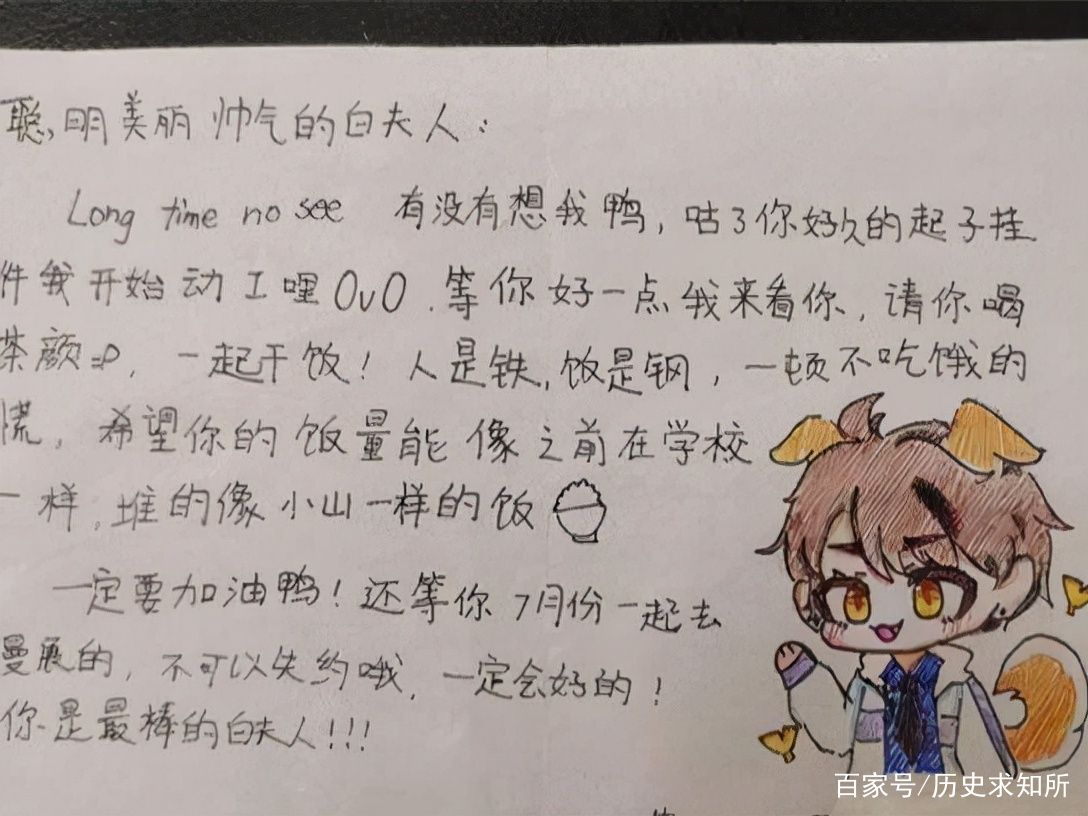 聪明美丽帅气的白夫人:
Long time no see 有没有想我鸭,咕了你好久的起子挂
件我开始动工哩OvO.等你好一点我来看你,请你喝
茶颜=P,一起干饭!人是铁,饭是钢,一顿不吃饿的
慌,希望你的饭量能像之前在学校
一样,堆的像小山一样的饭
一定要加油鸭!还等你7月份一起去
漫展的,不可以失约哦,一定会好的!
你是最棒的白夫人!!!
百家号/历史求知所